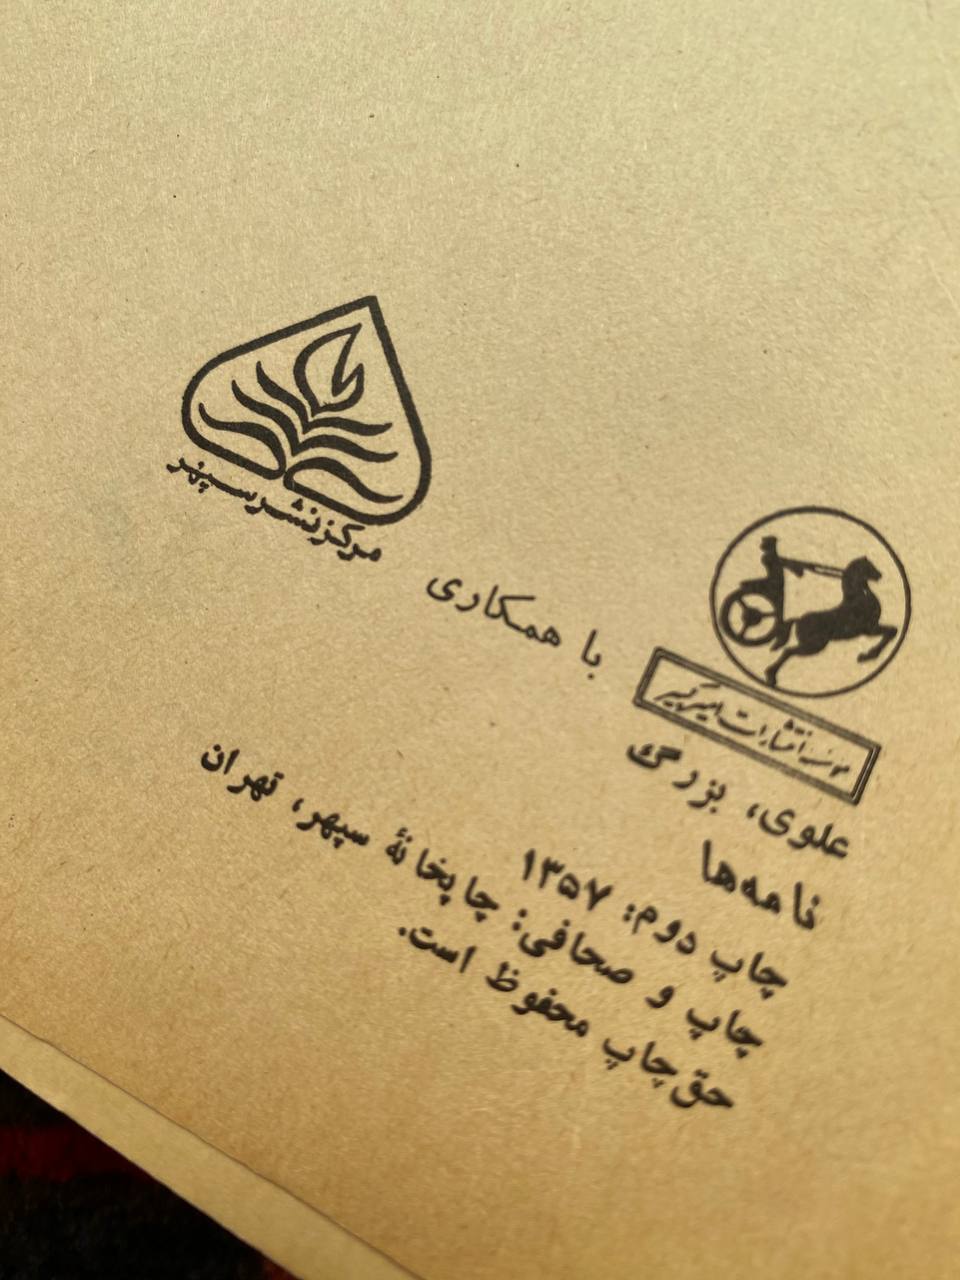 مؤسسه انتشارات امیرکبیر
با همکاری
مرکز نشر سپهر
علوی، بزرگ
نامه‌ها
چاپ دوم: ۱۳۵۷
چاپ و صحافی: چاپخانهٔ سپهر، تهران
حق چاپ محفوظ است.